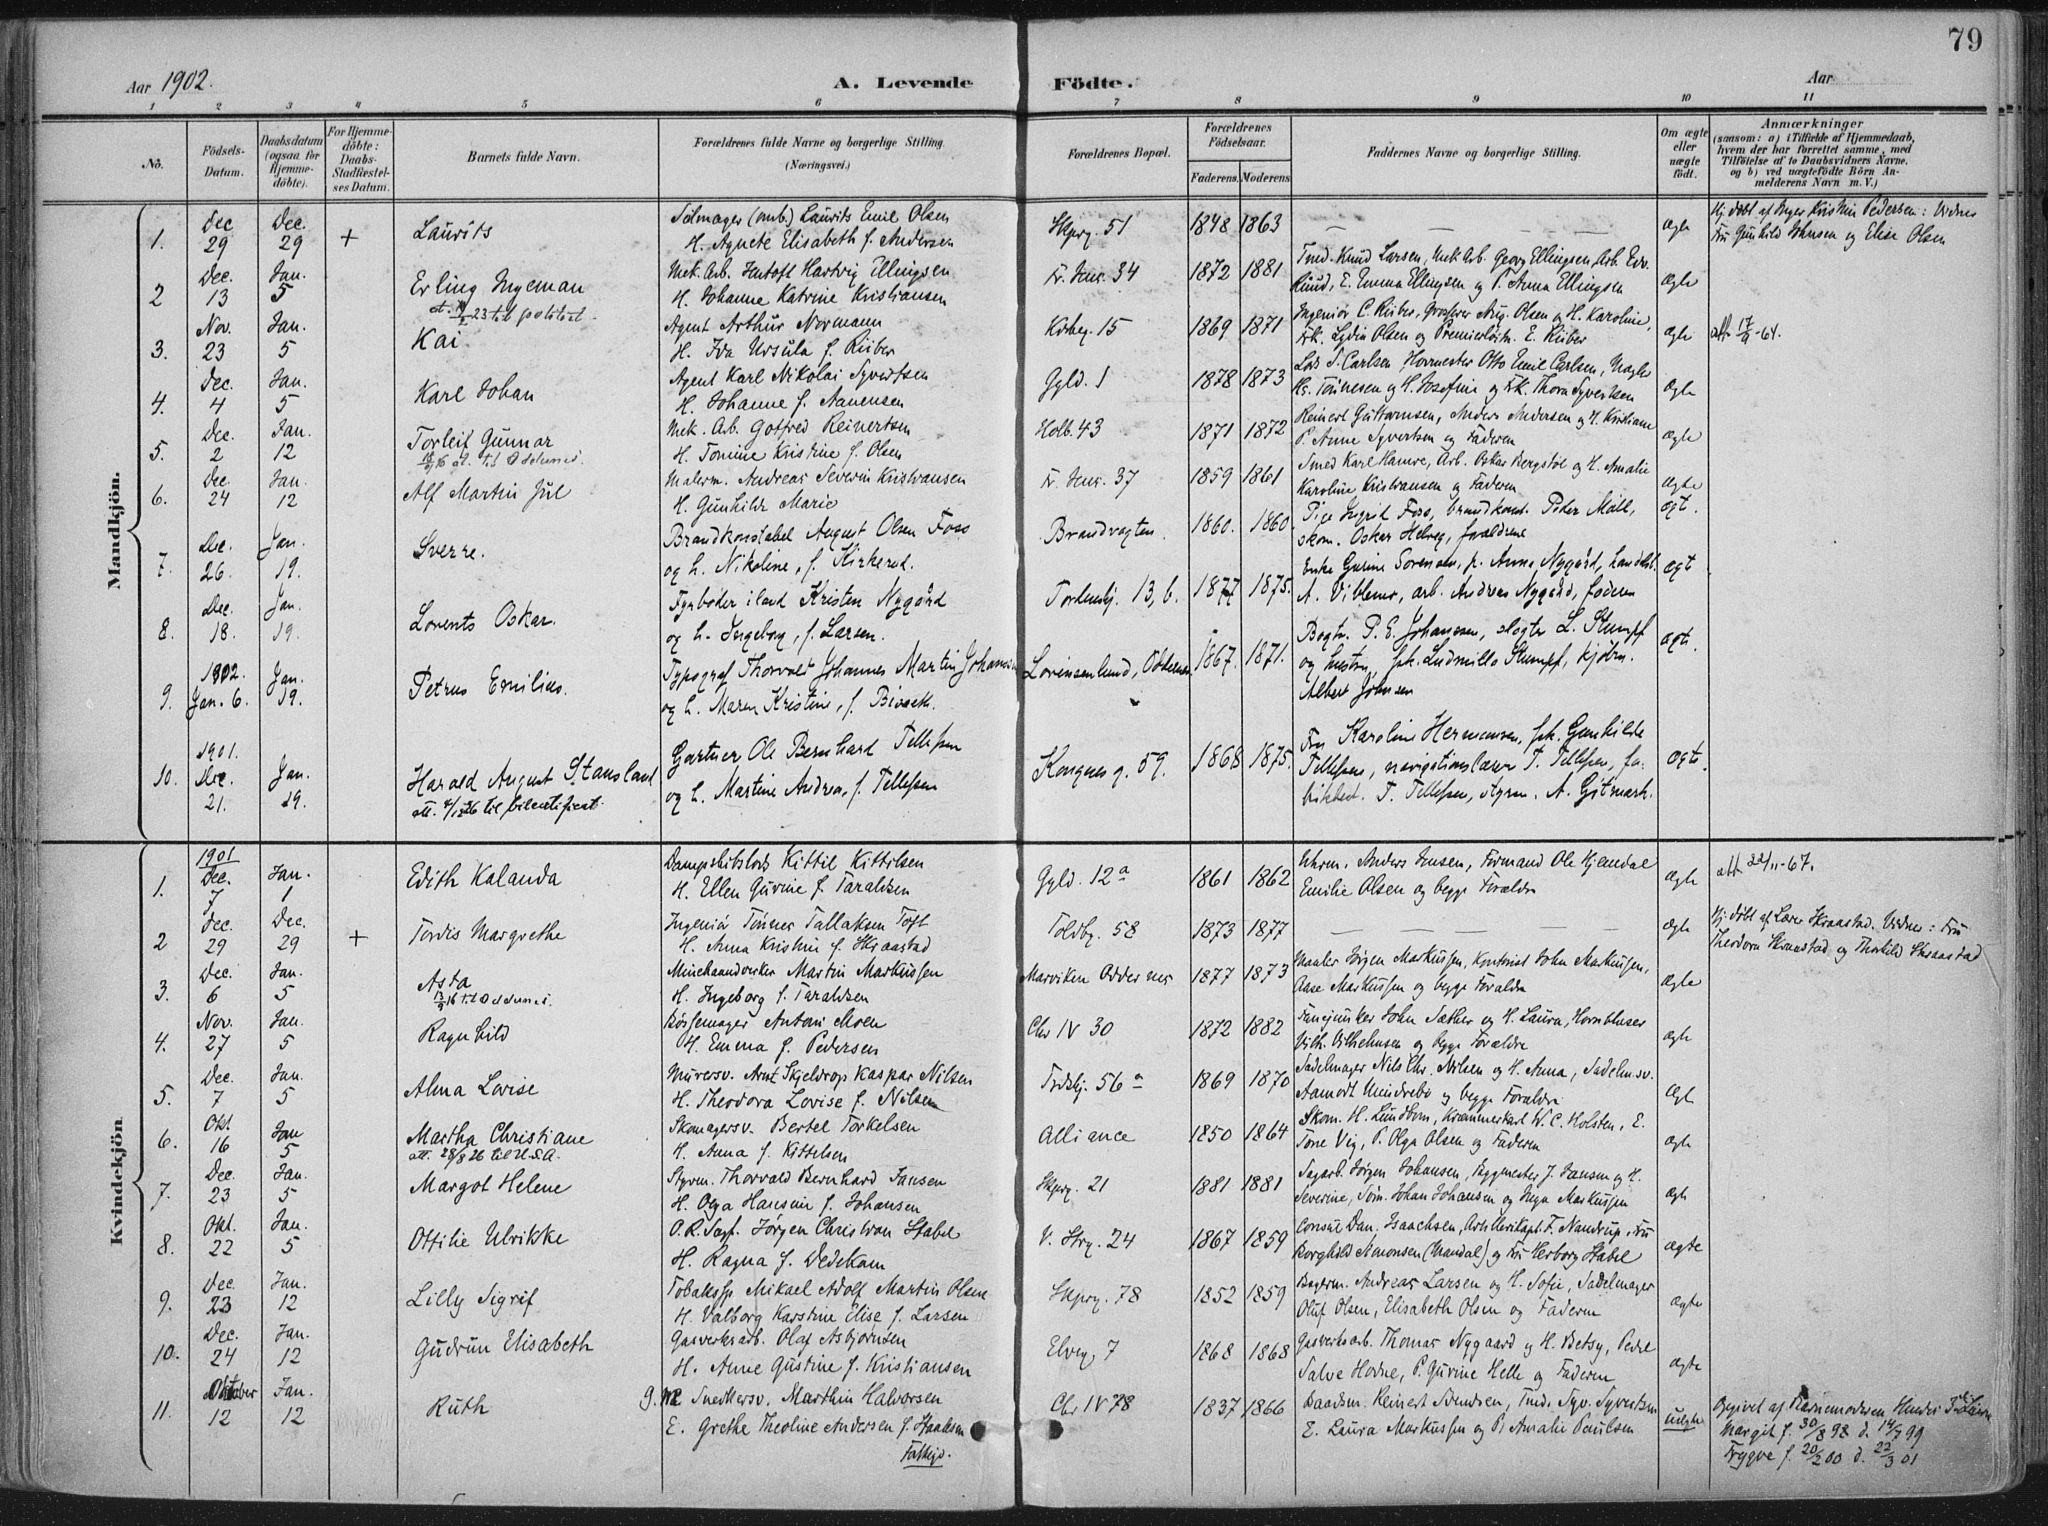 79
Aar 1902.
A. Levende Födte.
Aar
1 2 3 4 5 6 7 8 9 10 11
No.
Födsels-Datum.
Daabsdatum (ogsaa for Hjemme-döbte).
For Hjemme-döbte: Daabs-Stadfæstel-ses Datum.
Barnets fulde Navn.
Forældrenes fulde Navne og borgerlige Stilling. (Næringsvei.)
Forældrenes Bopæl.
Forældrenes Födselsaar.
Faderens. Moderens.
Faddernes Navne og borgerlige Stilling.
Om ægte eller uægte födt.
Anmærkninger
(saasom: a) i Tilfælde af Hjemmedaab, hvem der har forrettet samme, med Tilföielse af to Daabsvidners Navne, og b) ved uægtefödte Börn An-melderens Navn m. V.)
Mandkjön.
1. Dec 29 Dec. 29 + Laurits
Seilmager (omb.) Laurits Emil Olsen
H. Agnete Elisabeth f. Andersen
Skprg. 51 1848 1863 — — — ægte
Hj.døbt af Inger Kristin Pedersen: Vidner
Fru Gunhild Hansen og Elise Olsen
2 Dec. 13 Jan. 5 Erling Ingeman
Mek. Arb. Hartvig Ellingsen
H. Johanne Katrine Kristiansen
34 1872 1881
Smed. Knud Larsen, Mek. Arb. Georg Ellingsen, Arb.
E. Emma Ellingsen og P. Anna Ellingsen
ægte
3. Nov. 23 Jan. 5 Kai
Agent Arthur Normann
H. Ida Ursula f. Rüber
Kirkeg. 15 1869 1871
Ingeniør C. Rüber, Grosserer Aug. Olsen og H. Karoline,
Frk. Lydia Olsen og Premierløitn. E. Rüber
ægte att 17/9-64.
4. Dec. 4 Jan. 5 Karl Johan
Agent Karl Nikolai Syvertsen
H. Johanne f. Aanensen
Gyld. 1 1878 1873
Lods S. Carlsen, Havnemester Otto Emil Carlsen,
Tönnesen og H. Josefine og Frk. Thora Syvertsen
ægte
5. Dec. 2 Jan. 12 Torleif Gunnar
Mek. Arb. Gotfred Reinertsen
H. Tomine Kristine f. Olsen
Holb. 43 1871 1872
Reinert Guttormsen, Anders Andersen og H. Kristiane
P. Anne Syvertsen og Faderen
ægte
6. Dec 24 Jan. 12 Alf Martin Jul
Malerm. Andreas Severin Kristiansen
H. Gunhilde Marie
37 1859 1861
Smed Karl Hamre, Arb. Oskar Bergstøl og H. Amalie
Karoline Kristiansen og Faderen
ægte
7. Dec. 26. Jan. 19. Sverre.
Brandkonstabel August Olsen Foss
og h. Nikoline, f. Kirkerud.
Brandvagten. 1860. 1860.
Pige Ingrid Foss, brandkonst. Peder Moll,
skom. Oskar Helveg, forældrene
ægt.
8. Dec. 18. Jan. 19. Lorents Oskar.
Fyrbøder iland Kristen Nygård
og h. Ingeborg, f. Larsen.
Tordenskj. 13, b. 1877 1875.
Enke Gurine Sørensen, p. Anna Nygård,
A. arb. Andreas Nygård, faderen
ægt
9. 1902. Jan. 6. Jan. 19. Petrus Emilius.
Typograf Thorvald Johannes Martin Johansen
og h. Maren Kristine, f.
Lorensenlund, Oddernes 1867. 1871.
Bogtr. P. E. Johansson, slagter L. Stumpf
og hustru, frk. Ludmilla Stumpf, kjøbm.
Albert Johnsen
ægt.
10. 1901. Dec. 21. Jan. 19. Harald August Stansland
att. 4/12 26 til bilcertificat.
Gartner Ole Bernhard Tellefsen
og h. Martine Andrea, f. Tellefsen
Kongens g. 59. 1868 1875.
Fru Karoline Hermansen, frk. Gunhilde
Tellefsen, navigationslærer T. Tellefsen, fa-
T. Tellefsen, styrm. A. Gitmark.
ægt.
Kvindekjön
1. 1901 Dec. 7 Jan. 1 Edith Kalanda
Dampskibslods Kittil Kittilsen
H. Ellen Gurine f. Taraldsen
Gyld. 12a 1861 1862
Anders Jensen, Formand Ole Hjemdal
Emilie Olsen og begge Forældre
ægte att 22/11-67.
2 Dec. 29 Dec. 29 + Tordis Margrethe
Ingeniør Tönnes Tallaksen Toft
H. Anna Kristin f. Skraastad
Toldbg. 58 1873 1877 — — — ægte
Hj.døbt af Lærer Skraastad. Vidner: Fru
Theodora Skraastad og Thorhild Skraastad
3. Dec. 6 Jan. 5 Asta
Minehaandverker Martin Markussen
H. Ingeborg f. Taraldsen
Marviken Oddernes 1877 1873
Maaler Jørgen Markussen, Kontorist John Markussen,
Aase Markussen og begge Forældre
ægte
4. Nov. 27 Jan. 5 Ragnhild
Børsemager Anton Moen
H. Emma f. Pedersen
Chr IV 30 1872 1882
Fanejunker John Sæther og H. Laura, Hornblæser
Vilh. Vilhelmsen og begge Forældre
ægte
5. Dec. 7 Jan. 5 Alma Lovise
Murersv. Arnt Skjeldrop Kaspar Nilsen
H. Theodora Lovise f. Nilsen
Trdskj. 56a 1869 1870
Sadelmager Nils Chr. Nilsen og H. Anna, Sadelm.sv.
Aamodt Mindrebø og begge Forældre
ægt
6. Okt 16 Jan 5 Martha Christiane
att. 28/8 26 til U.S.A.
Skomagersv. Bertel Torkelsen
H. Anna f. Kittelsen
Alliance 1850 1864
Skom. H. Lundbom, Kræmmerkart W. C. Holsten, E.
Tone Vig, P. Olga Olsen og Faderen
ægte
7. Dec. 23 Jan. 5 Margot Helene
Styrm. Thorvald Bernhard Jansen
H. Olga Hansine f. Johansen
Skprg. 21 1881 1881
Sagarb. Jørgen Johansen, Bygmester J. Jansen og H.
Severine, Tøm. Johan Johansen og Inga Markussen
ægte
8. Okt. 22 Jan. 5 Ottilie Ulrikke
O.R.Sagf. Jørgen Christian Stabel
H. Ragna f. Dedekam
V. Strg. 24 1867 1859
Consul Dan. Isaachsen, Artillerikapt. F. Nandrup, Fru
Borghild Amonsen (Mandal) og Frk Herborg Stabel
ægte
9. Dec. 23 Jan. 12 Lilly Sigrid
Tobakssp. Mikael Adolf Martin Olsen
H. Valborg Karstine Elise f. Larsen
Skprg. 78 1852 1859
Bagerm. Andreas Larsen og H. Sofie, Sadelmager
Oluf Olsen, Elisabeth Olsen og Faderen
ægte
10. Dec. 24 Jan. 12 Gudrun Elisabeth
Gasverksarb. Olaf Asbjørnsen
H. Anne Gustine f. Kristiansen
Elveg. 7 1868 1868
Gasverksarb. Thomas Nygaard og H. Betsy, Peder
Salve Hodne, P. Gurine Helle og Faderen
ægte
11. Oktober 12 Jan. 12 Ruth
Snedkersv. Marthin Halvorsen
E. Grethe Theoline Andersen f. Isaaksen
Chr IV 78 1837 1866
Baadsm. Reinert Svendsen, Tmd. Syv. Syvertsen
E. Laura Markussen og P. Amalie Paulsen
uægte
Opgivet af Barnemoderen
Margit f. 30/8 98 d. 14/7 99
Trygve f. 20/2 00 d. 22/3 01